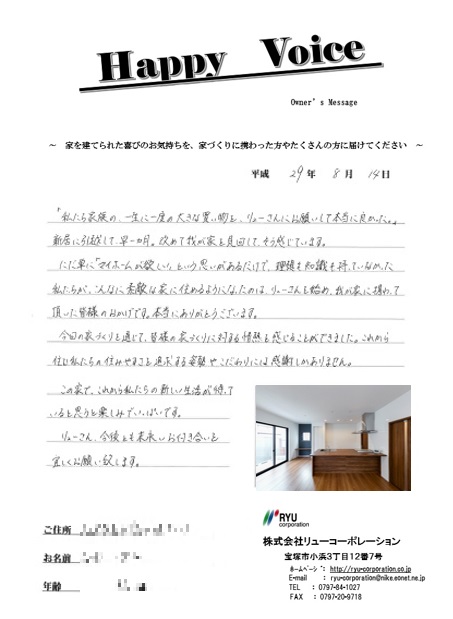 Happy Voice
Owner's Message
～ 家を建てられた喜びのお気持ちを、家づくりに携わった方やたくさんの方に届けてください ～
平成 29年 8月 14日
「私たち家族の、一生に一度の大きな買い物を、リューさんにお願いして本当に良かった。」
新居に引越して、早一カ月。改めて我が家を見回して、そう感じています。
ただ単に「マイホームが欲しい」という思いがあるだけで、理想も知識も持っていなかった
私たちが、こんなに素敵な家に住めるようになったのは、リューさんを始め、我が家に携わって
頂いた皆様のおかげです。本当にありがとうございます。
今回の家づくりを通じて、皆様の家づくりに対する情熱を感じることができました。これから
住む私たちの住みやすさを追求する姿勢やこだわりには感謝しかありません。
この家で、これから私たちの新しい生活が待って
いると思うと楽しみでいっぱいです。
リューさん、今後とも末永いお付き合いを
宜しくお願い致します。
RYU
corporation
ご住所
お名前
年齢
株式会社リューコーポレーション
宝塚市小浜3丁目12番7号
ホームページ: http://ryu-corporation.co.jp
E-mail : ryu-corporation@nike.eonet.ne.jp
TEL : 0797-84-1027
FAX : 0797-20-9718